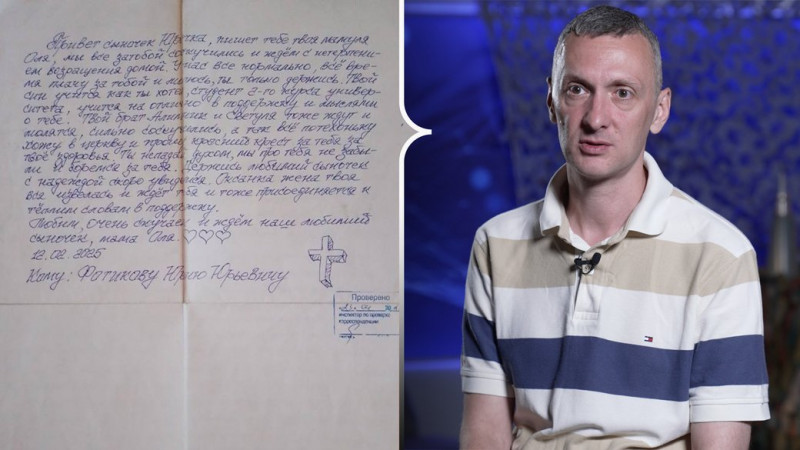 Привет сыночек Юрочка, пишет тебе твоя мамуля
Оля, мы все за тобой соскучились и ждём с нетерпени-
ем возращения домой. У нас все нормально, всё вре-
мя плачу за тобой и молюсь, ты только держись. Твой
син учится как ты хотел, студент 2-го курса универ-
ситета, учится на отлично в поддержку и мыслями
о тебе. Твой брат и Светуля тоже ждут и
молятся, сильно соскучились, а так всё потехоньку
хожу в церковь и прошу
твоё здоровья. Ты не падай духом, мы про тебя не забы-
ли и боремся за тебя. Держись любимий сыночек
с надеждой скоро увидимся. Оксанка жена твоя
вся извелась и ждёт тебя и тоже присоединяется к
тёплим словам в поддержку.
Любим, очень скучаем и ждём наш любимий
сыночек, мама Оля.
12.02.2025
Кому: Фатикову Юрию Юрьевичу
Проверено
инспектор по проверке
корреспонденции